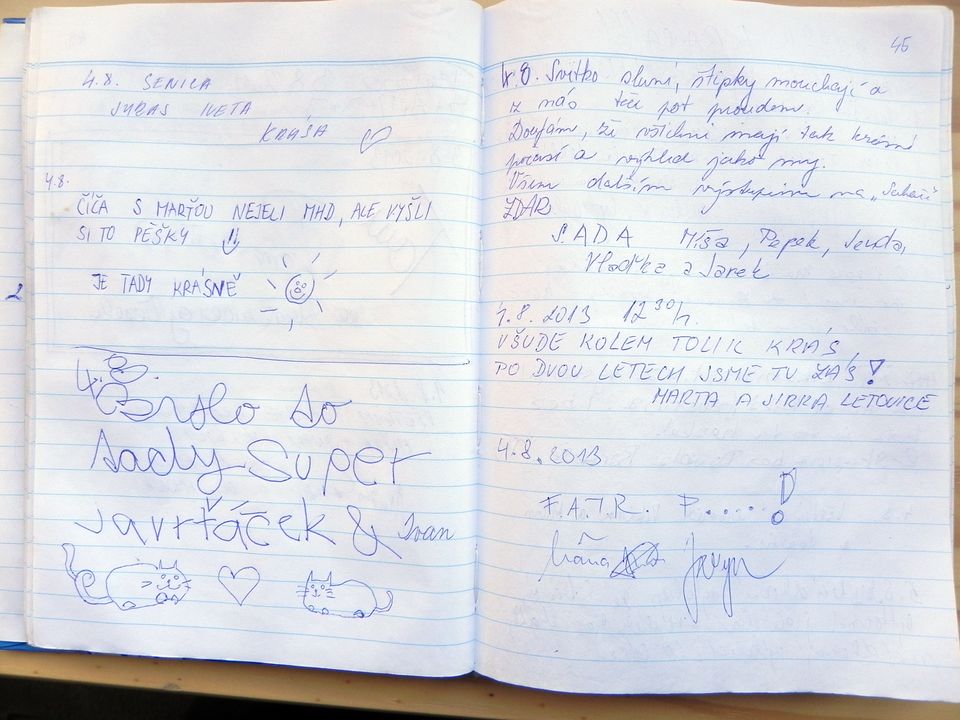 4.8. SENICA
JURAS IVETA
KRÁSA
4.8.
ČÍČA S MARŤOU NEJELI MHD, ALE VYŠLI
SI TO PĚŠKY
JE TADY KRÁSNĚ
2
4.8.
Brslo so
sady Super
Javrťáček & Ivan
45
4.8. Světko sluní, štípky mouchají a
z nás teče pot proudem.
Doufám, že všichni mají tak krásné
počasí a výhled jako my.
Všem dalším výstupům na „
ZDAR.
SADA Míša, Pepek, Jenda,
Vlaďka a Jarek
4.8.2013 12 30 h.
VŠUDE KOLEM TOLIK KRÁS,
PO DVOU LETECH JSME TU ZAS!
MARTA A JIRKA LETOVICE
4.8.2013
F.A.T.R. P.....!